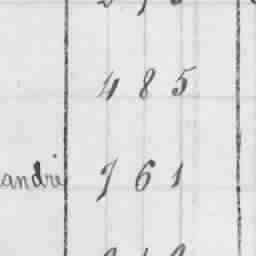 4 8 5
andri 7 6 1